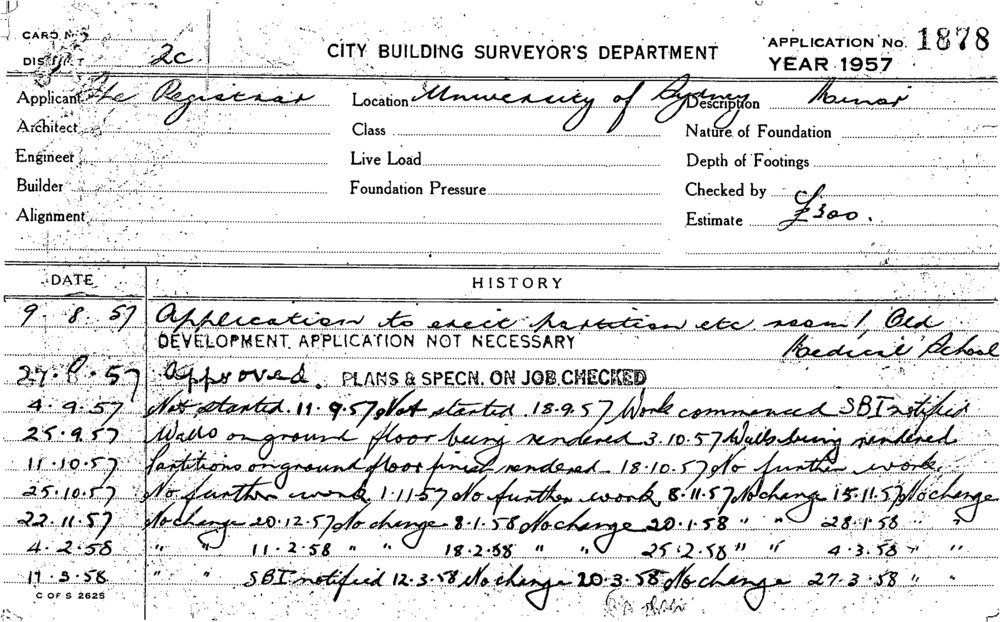 CARD No.
DISTRICT 2c
CITY BUILDING SURVEYOR'S DEPARTMENT
APPLICATION No. 1878
YEAR 1957
Applicant The Registrar Location University of Sydney Description Minor
Architect Class Nature of Foundation
Engineer Live Load Depth of Footings
Builder Foundation Pressure Checked by
Alignment Estimate £300.
DATE HISTORY
9. 8. 57 Application to erect partition etc room 1, Old
Medical School
DEVELOPMENT APPLICATION NOT NECESSARY
27.8.57 Approved. PLANS & SPECN. ON JOB CHECKED
4.9.57 Not started. 11.9.57 Not started. 18.9.57 Work commenced SBI notified
25.9.57 Walls on ground floor being rendered 3.10.57 Walls being rendered
11.10.57 Partitions on ground floor finish rendered 18.10.57 No further work.
25.10.57 No further work 1.11.57 No further work 8.11.57 No change 15.11.57 No change
22.11.57 No change 20.12.57 No change 8.1.58 No change 20.1.58 " " 28.1.58 " "
4.2.58 " " 11.2.58 " " 18.2.58 " " 25.2.58 " " 4.3.58 " "
11.3.58 " " SBI notified 12.3.58 No change 20.3.58 No change 27.3.58 " "
C OF S 2625